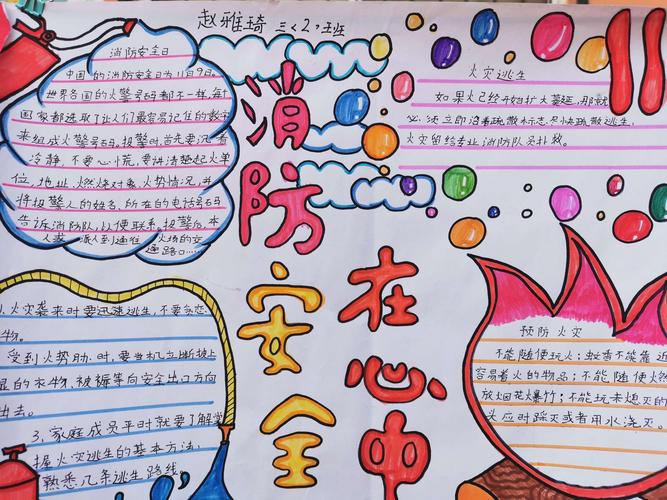 赵雅琦 三〈2〉班
消防安全在心中
消防安全日
中国的消防安全日为11月9日。
世界各国的火警号码都不一样,每个
国家都选取了让人们最容易记住的数字
来组成火警号码。报警时,首先要沉着
冷静,不要心慌,要讲清楚起火单
位,地址,燃烧对象,火势情况,并
将报警人的姓名,所在的电话号码
告诉消防队,以便联系,报警后,本
人或 派人到通往 火场的交
通路口
火灾逃生
如果火已经开始扩大蔓延,那就
必须立即沿着疏散标志尽快疏散逃生,
火灾留给专业消防队员扑救。
1.火灾袭来时要迅速逃生,不要贪恋
物。
受到火势胁 时,要当机立断披上
湿的衣物,被褥等向安全出口方向
出去。
3、家庭成员平时就要了解掌
握火灾逃生的基本方法,
熟悉几条逃生路线。
预防火灾
不能随便玩火;蚊香不能靠近
容易着火的物品;不能随便燃
放烟花爆竹;不能玩未熄灭的
头应时踩灭或者用水浇灭。